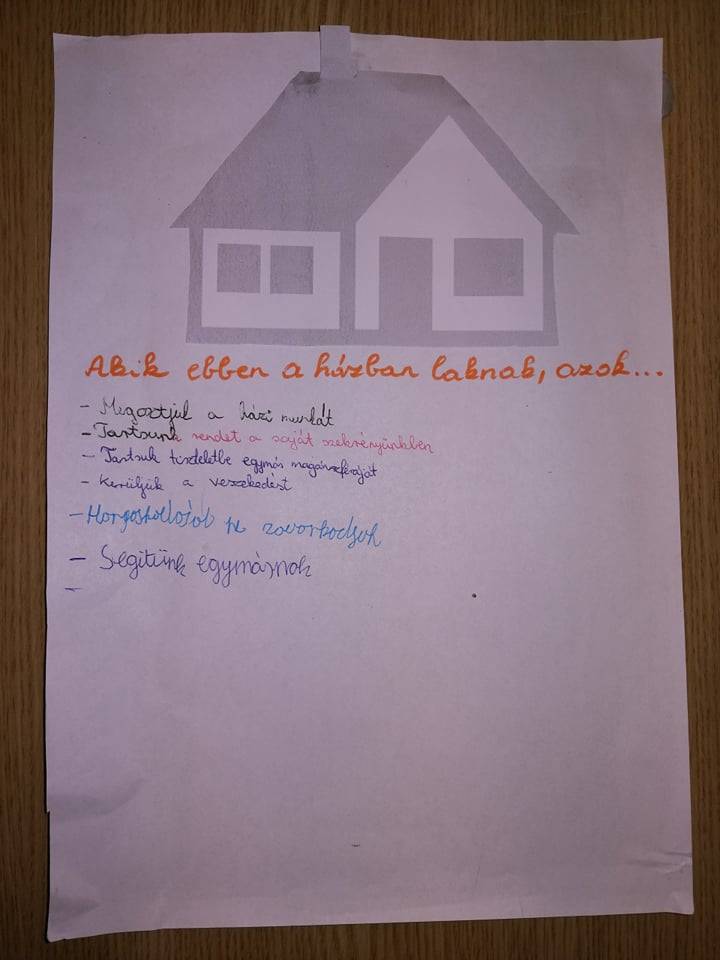 Akik ebben a házban laknak, azok...
- Megosztjuk a házi munkát
- Tartsunk rendet a saját szekrényünkben
- Tartsuk tiszteletbe egymás magánszféráját
- Kerüljük a veszekedést
- ne zavarkodjuk
- Segítünk egymásnak
-